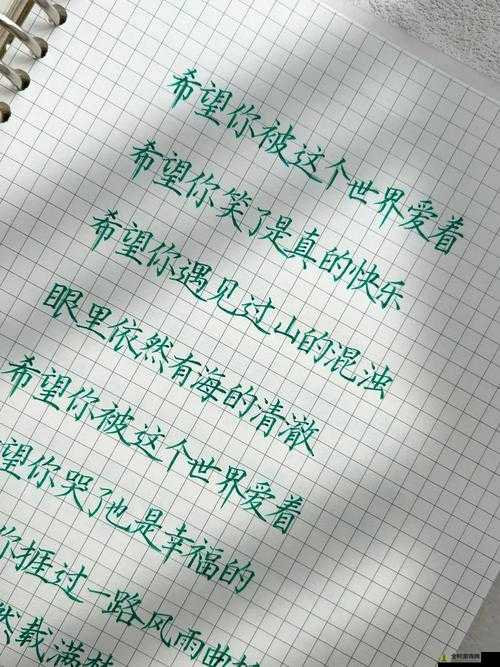 希望你被这个世界爱着
希望你笑了是真的快乐
希望你遇见过山的混浊
眼里依然有海的清澈
希望你被这个世界爱着
望你哭了也是幸福的
你捱过一路风雨曲折
然载满